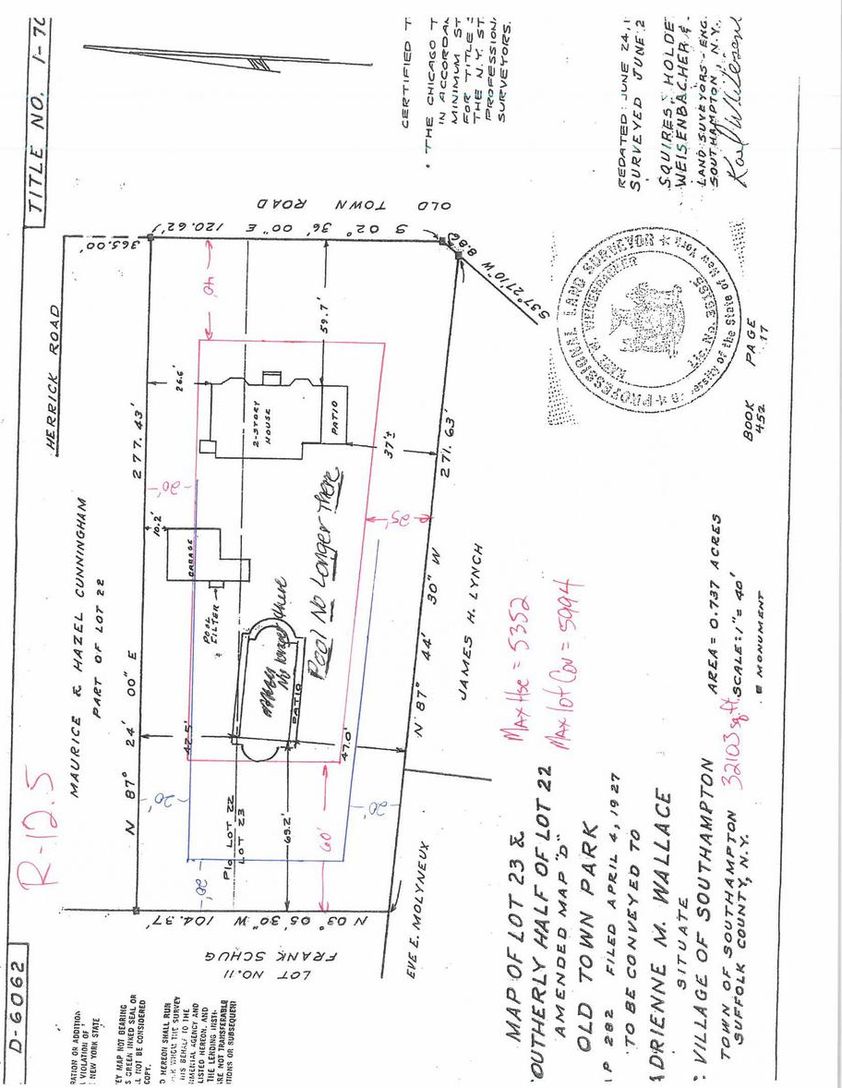 D-6062
TITLE NO. 1-70
R-12.5
HERRICK ROAD
MAURICE & HAZEL CUNNINGHAM
PART OF LOT 22
365.00'
N 87° 24' 00" E
277.43'
OLD TOWN ROAD
S 02° 36' 00" E 120.62'
8.86
S37°27'10"W
40'
59.7'
26.6'
2-STORY
HOUSE
PATIO
37'±
20'
10.2'
GARAGE
POOL
FILTER
25'
Pool No Longer There
No longer there
PATIO
42.5'
47.0'
20'
20'
20'
P/o LOT 22
LOT 23
69.2'
60'
N 87° 44' 30" W
271.63'
JAMES H. LYNCH
EVE E. MOLYNEUX
N 03° 05' 30" W 104.97'
LOT NO. 11
FRANK SCHUG
MAP OF LOT 23 &
OUTHERLY HALF OF LOT 22
AMENDED MAP "D"
OLD TOWN PARK
P 282 FILED APRIL 4, 1927
TO BE CONVEYED TO
ADRIENNE M. WALLACE
SITUATE
: VILLAGE OF SOUTHAMPTON
TOWN OF SOUTHAMPTON
SUFFOLK COUNTY, N.Y.
Max Hse = 5352
Max Lot Cov = 5994
AREA = 0.737 ACRES
32103 sq ft
SCALE: 1" = 40'
= MONUMENT
BOOK PAGE
452 17
CERTIFIED T
• THE CHICAGO T
IN ACCORDAN
MINIMUM ST
FOR TITLE
THE N.Y. ST
PROFESSION
SURVEYORS.
REDATED: JUNE 24, 1
SURVEYED JUNE 2
SQUIRES, HOLDE
WEISENBACHER &
LAND SURVEYORS - ENG
SOUTHAMPTON, N.Y.
PROFESSIONAL LAND SURVEYOR
KARL W. WEISENBACHER
Lic. No. 35195
ersity of the State of New York
RATION OR ADDITION
VIOLATION OF
NEW YORK STATE
EY MAP NOT BEARING
S GREEN INKED SEAL OR
LL NOT BE CONSIDERED
COPY.
D HEREON SHALL RUN
WHOM THE SURVEY
HIS BEHALF TO THE
MENTAL AGENCY AND
LISTED HEREON, AND
THE LENDING INSTI-
ARE NOT TRANSFERABLE
TIONS OR SUBSEQUENT